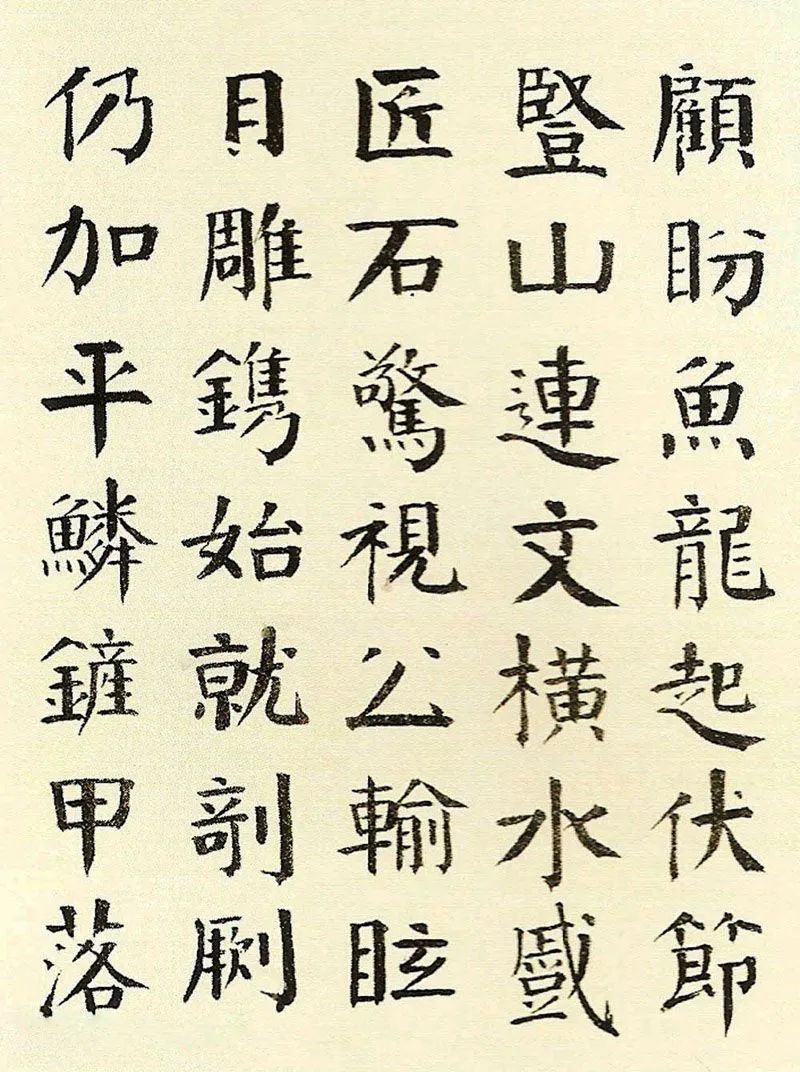 顧盼魚龍起伏節
豎山連文橫水蹙
匠石驚視公輸眩
目雕鐫始就剞劂
仍加平鱗鏟甲落